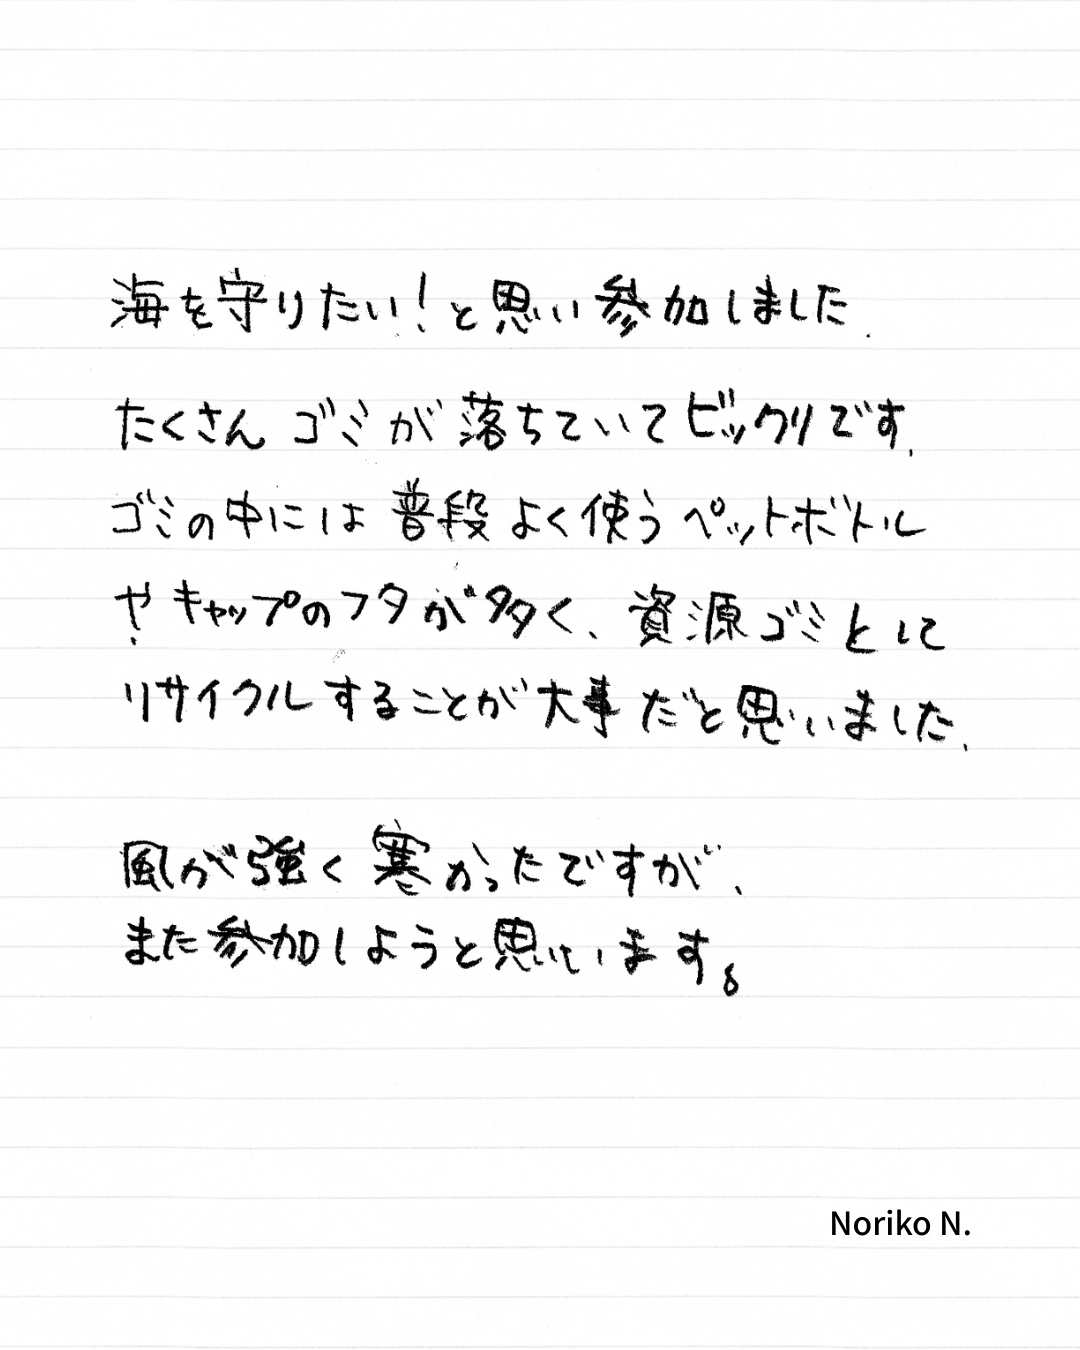 海を守りたい！と思い参加しました.
たくさんゴミが落ちていてビックリです.
ゴミの中には普段よく使うペットボトル
やキャップのフタが多く、資源ゴミとして
リサイクルすることが大事だと思いました.
風が強く寒かったですが、
また参加しようと思います。
Noriko N.